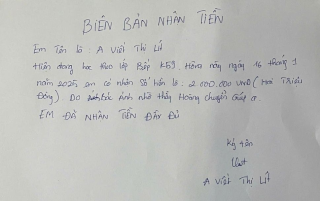 BIÊN BẢN NHÂN TIỀN
Em Tên là : A Viết Thị Lít
Hiện đang học theo lớp Bếp K59. Hôm nay ngày 16 tháng 1
năm 2025 em có nhận số tiền là : 2.000.000 VND ( Hai Triệu
Đồng). Do Bác Ánh nhờ thầy Hoàng chuyển Giúp ạ.
EM ĐÃ NHÂN TIỀN ĐẦY ĐỦ
Ký tên
Lít
A Viết Thị Lít